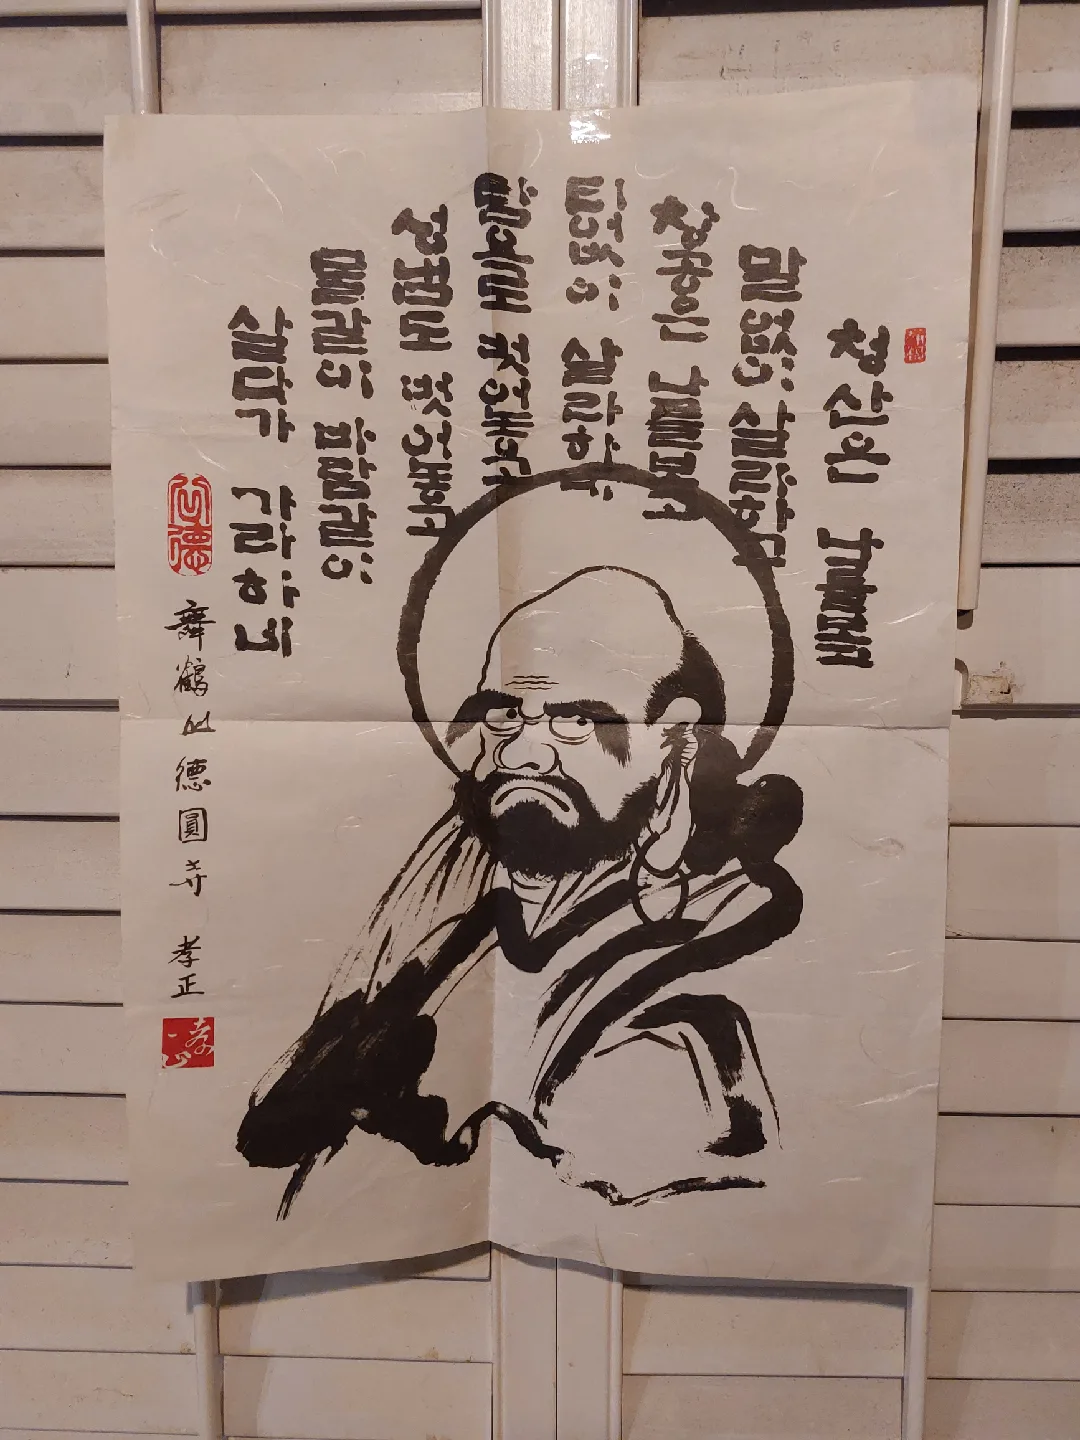 청산은 나를보고
말없이 살라하고
창공은 나를보고
티없이 살라하네
탐욕도 벗어놓고
성냄도 벗어놓고
물같이 바람같이
살다가 가라하네
舞鶴山 德圓寺 孝正